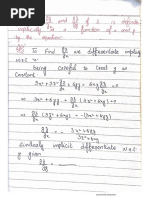 ∂z/∂x and ∂z/∂y if z is
implicitly as a function of x and y
by the equation
To find ∂z/∂x we differentiate implicitly
w.r.t 'x'
being careful to treat y as
Constant
3x² + 3z² ∂z/∂x + 6yz + 6xy ∂z/∂x = 0
+ 6yz + ∂z/∂x (3z² + 6xy) = 0
⇒ ∂z/∂x (3z² + 6xy) = -(3x² + 6yz)
∂z/∂x = -(3x² + 6yz) / 3z² + 6xy
Similarly implicit differentiate w.r.t
y gives
∂z/∂y = -